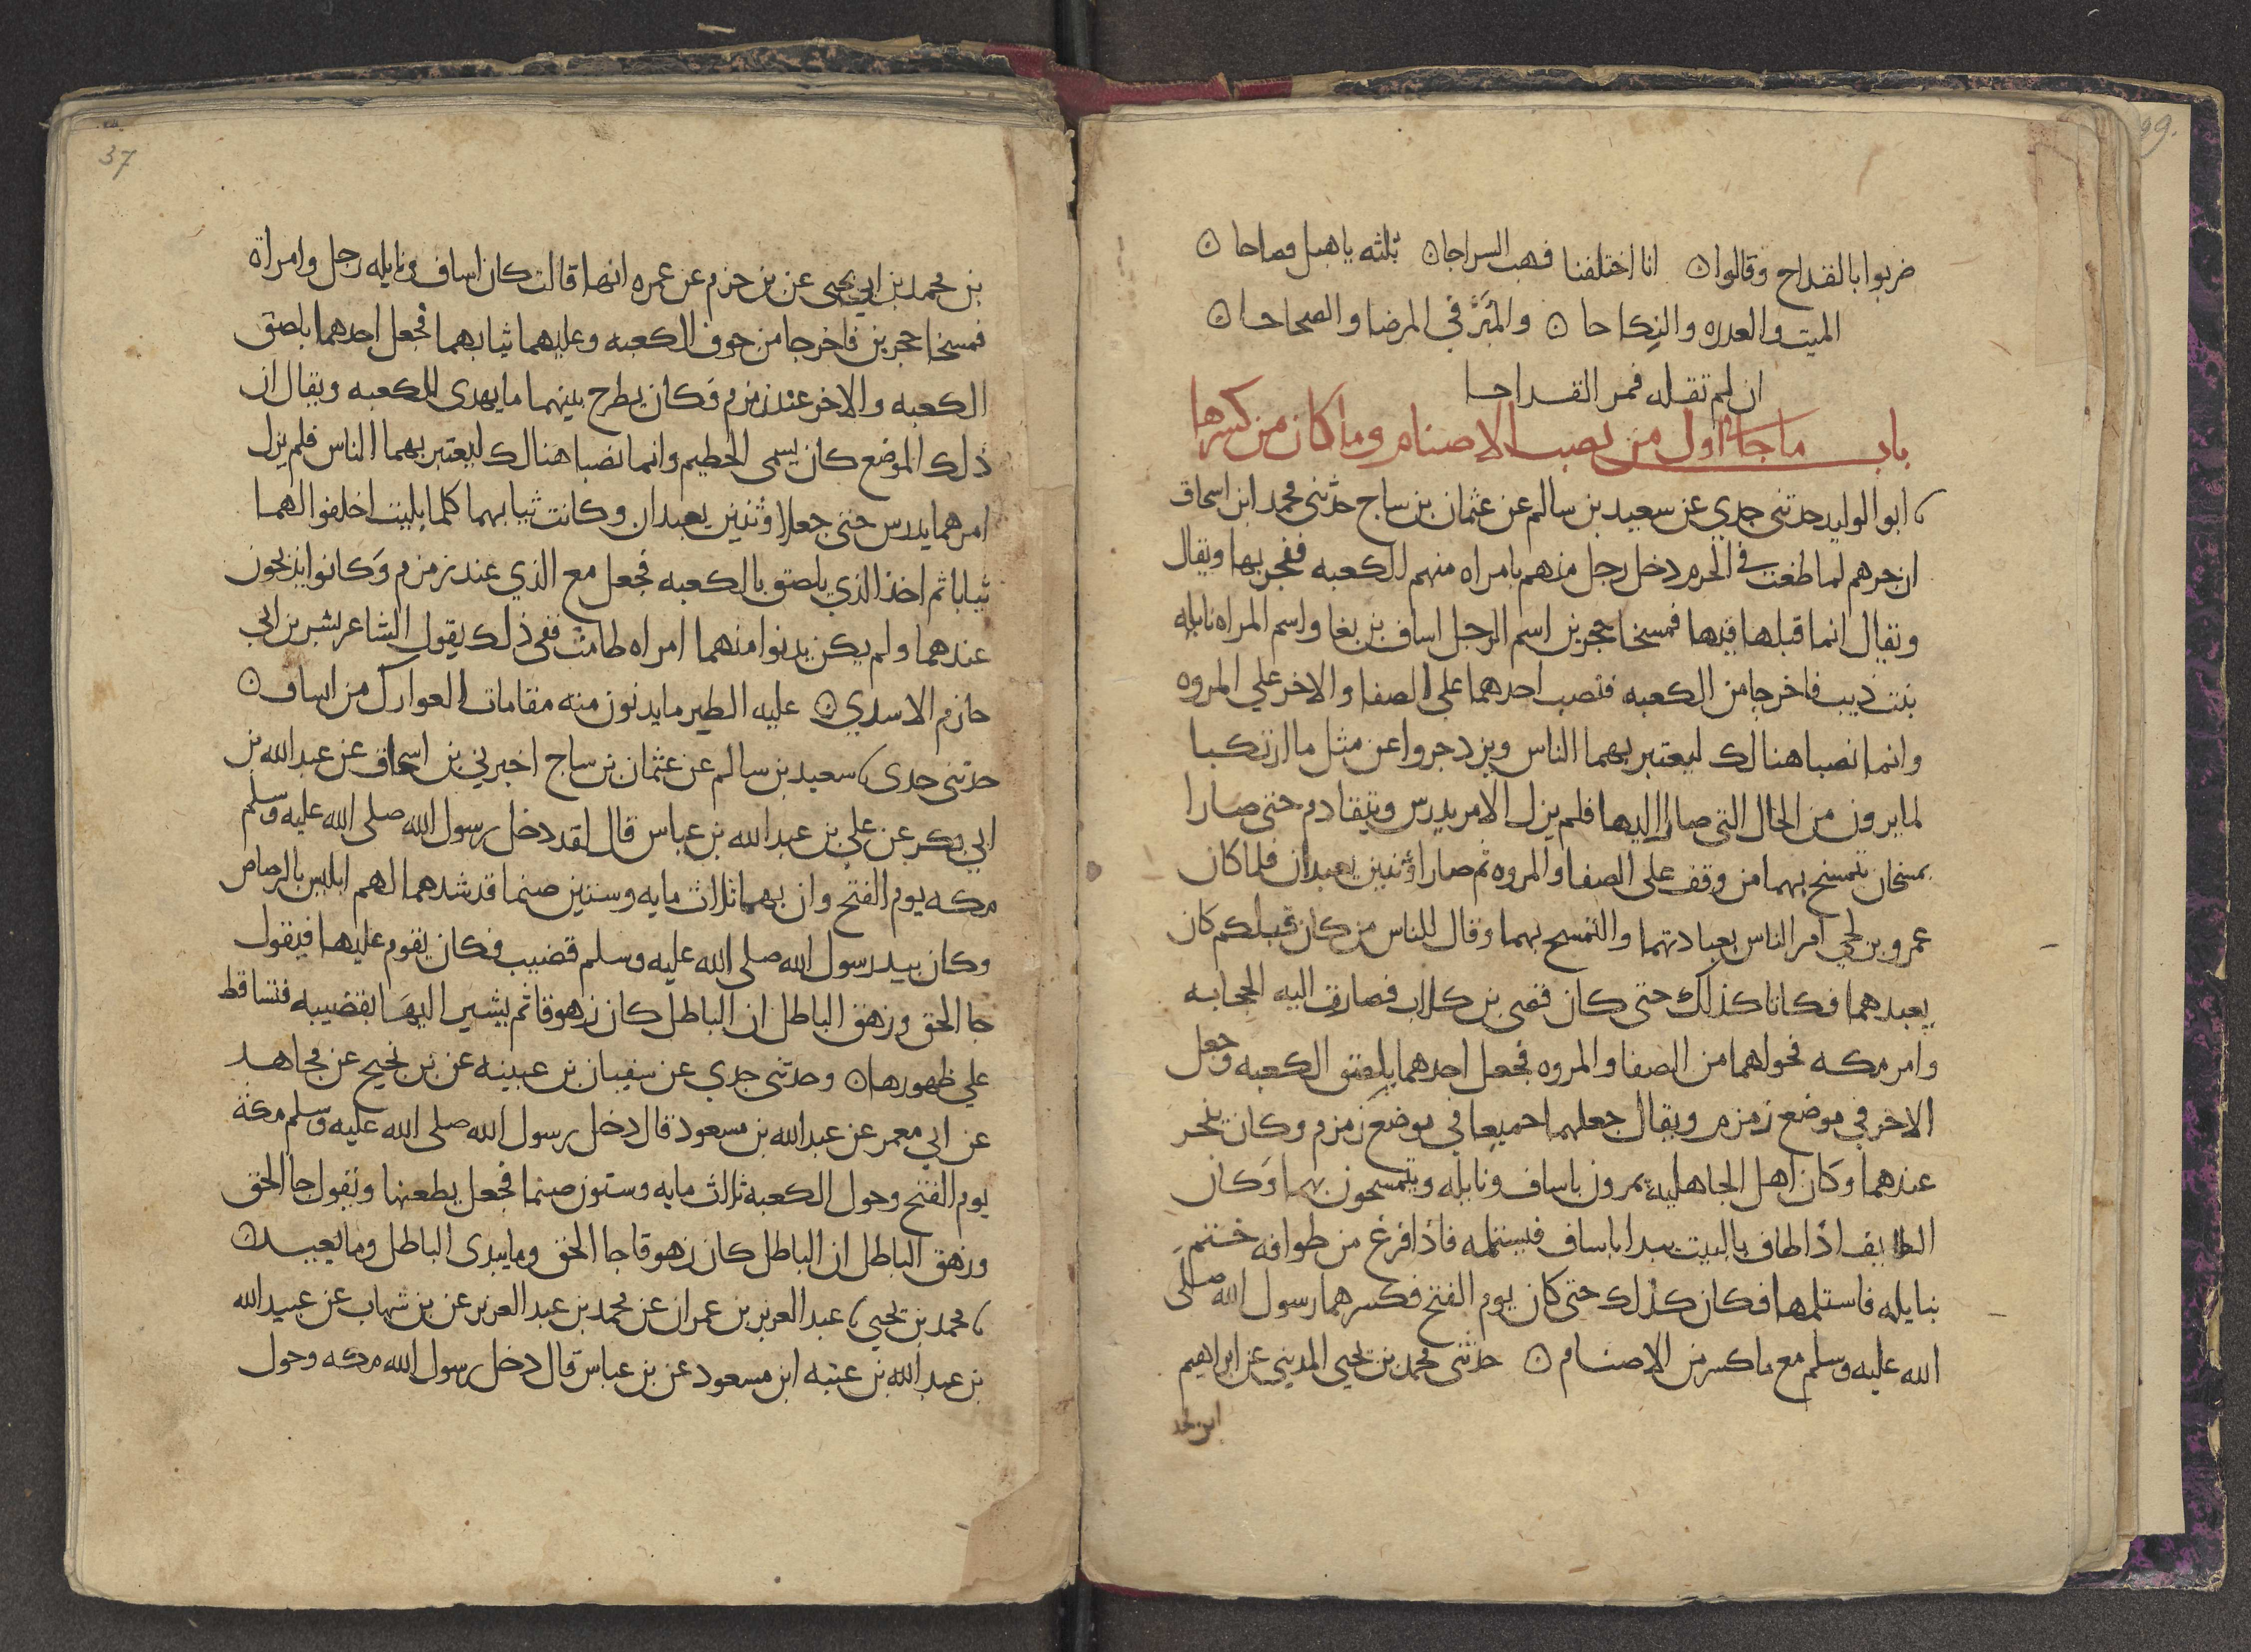 99.
ضربوا بالقداح وقالوا ۞ انا اختلفنا فهب السراحا ۞ ثلثه يا هبل فصاحا ۞
الميت والعدره والنكاحا ۞ والمبر في المرضا والصحاحا ۞
ان لم تقله فمر القداحا
باب ما جا اول من نصب الاصنام وما كان من كسرها
ابو الوليد حدثني جدي عن سعيد بن سالم عن عثمان بن ساج حدثني محمد ابن اسحاق
ان جرهم لما طغت في الحرم دخل رجل منهم بامراه منهم الكعبه ففجر بها ويقال
ويقال انما قبلها فيها فمسخا حجرين اسم الرجل اساف بن بغا واسم المراه نايله
بنت ذيب فاخرجا من الكعبه فنصب احدهما على الصفا والاخر علي المروه
وانما نصبا هنالك ليعتبر بهما الناس ويزدجروا عن مثل ما ارتكبا
لما يرون من الحال التي صارا اليها فلم يزل الامر يدرس ويتقادم حتى صارا
يمسحان يتمسح بهما من وقف على الصفا والمروه ثم صارا وثنين يعبدان فلما كان
عمرو بن لحي امر الناس بعبادتهما والتمسح بهما وقال للناس من كان قبلكم كان
يعبدهما فكانا كذلك حتى كان قصى بن كلاب فصارت اليه الحجابه
وامر مكه فحولهما من الصفا والمروه فجعل احدهما بلصق الكعبه وجعل
الاخر في موضع زمزم ويقال جعلهما جميعا في موضع زمزم وكان ينحر
عندهما وكان اهل الجاهليه يمرون باساف ونايله ويتمسحون بهما وكان
الطايف اذا طاف بالبيت يبدا باساف فيستلمه فاذا فرغ من طوافه ختم
بنايله فاستلمها فكان كذلك حتى كان يوم الفتح فكسرهما رسول الله صلى
الله عليه وسلم مع ما كسر من الاصنام ۞ حدثني محمد بن يحيي المديني عن ابراهيم
37
بن محمد بن ابي يحيى عن بن حزم عن عمره انها قالت كان اساف ونايله رجل وامراة
فمسخا حجرين فاخرجا من جوف الكعبه وعليهما ثيابهما فجعل احدهما بلصق
الكعبه والاخر عند زمزم فكان يطرح بينهما ما يهدى للكعبه ويقال ان
ذلك الموضع كان يسمى الحطيم وانما نصبا هنالك ليعتبر بهما الناس فلم يزل
امرهما يدرس حتى جعلا وثنين يعبدان وكانت ثيابهما كلما بليت اخلفوا لهما
ثيابا ثم اخذ الذي يلصق بالكعبه فجعل مع الذي عند زمزم وكانوا يذبحون
عندهما ولم يكن يدنوا منهما امراه طامث ففي ذلك يقول الشاعر بشر بن ابي
حازم الاسدي ۞ عليه الطير ما يدنون منه مقامات العوارك من اساف ۞
حدثني جدي سعيد بن سالم عن عثمان بن ساج اخبرني بن اسحاق عن عبد الله بن
ابي بكر عن علي بن عبد الله بن عباس قال لقد دخل رسول الله صلى الله عليه وسلم
مكه يوم الفتح وان بهما ثلاث مايه وستين صنما قد شدهما لهم ابليس بالرصاص
وكان بيد رسول الله صلى الله عليه وسلم قضيب فكان يقوم عليها فيقول
جا الحق وزهق الباطل ان الباطل كان زهوقا ثم يشير اليها بقضيبه فتساقط
علي ظهورها ۞ وحدثني جدي عن سفيان بن عيينه عن بن نجيح عن مجاهد
عن ابي معمر عن عبد الله بن مسعود قال دخل رسول الله صلى الله عليه وسلم مكة
يوم الفتح وحول الكعبة ثلاث مايه وستون صنما فجعل يطعنها ويقول جا الحق
وزهق الباطل ان الباطل كان زهوقا جا الحق وما يبدى الباطل وما يعيد ۞
محمد بن يحيي عبد العزيز بن عمران عن محمد بن عبد العزيز عن بن شهاب عن عبيد الله
بن عبد الله بن عتبه ابن مسعود عن بن عباس قال دخل رسول الله مكه وحول